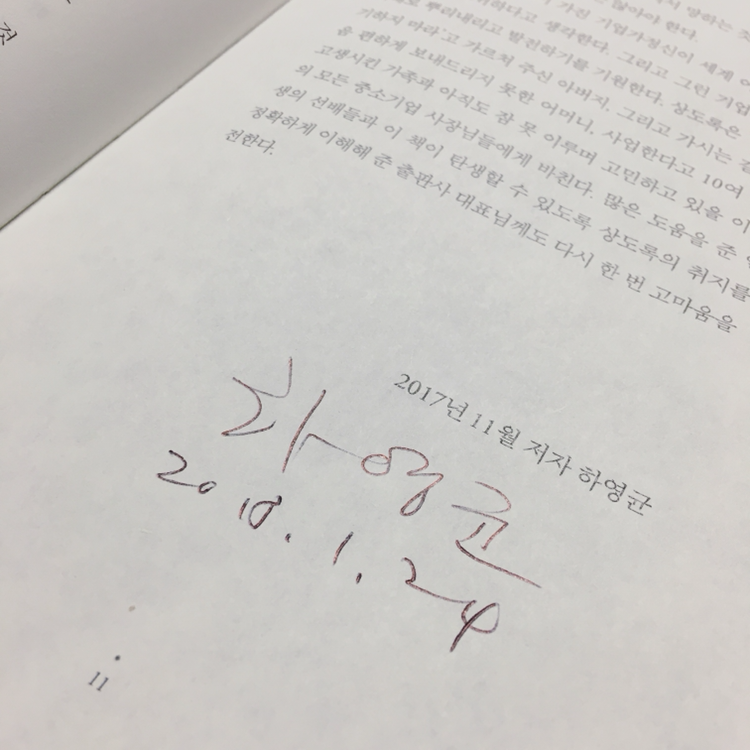 것
지 망하는 것
가진 기업가정신이 세계 어
하다고 생각한다. 그리고 그런 기업
로 뿌리내리고 발전하기를 기원한다. 상도록은
기하지 마라'고 가르쳐 주신 아버지, 그리고 가시는 길
음 편하게 보내드리지 못한 어머니, 사업한다고 10여
고생시킨 가족과 아직도 잠 못 이루며 고민하고 있을 이
의 모든 중소기업 사장님들에게 바친다. 많은 도움을 준
생의 선배들과 이 책이 탄생할 수 있도록 상도록의 취지를
정확하게 이해해 준 출판사 대표님께도 다시 한 번 고마움을
전한다.
2017년 11월 저자 하영균
하영균
2018. 1. 24
11